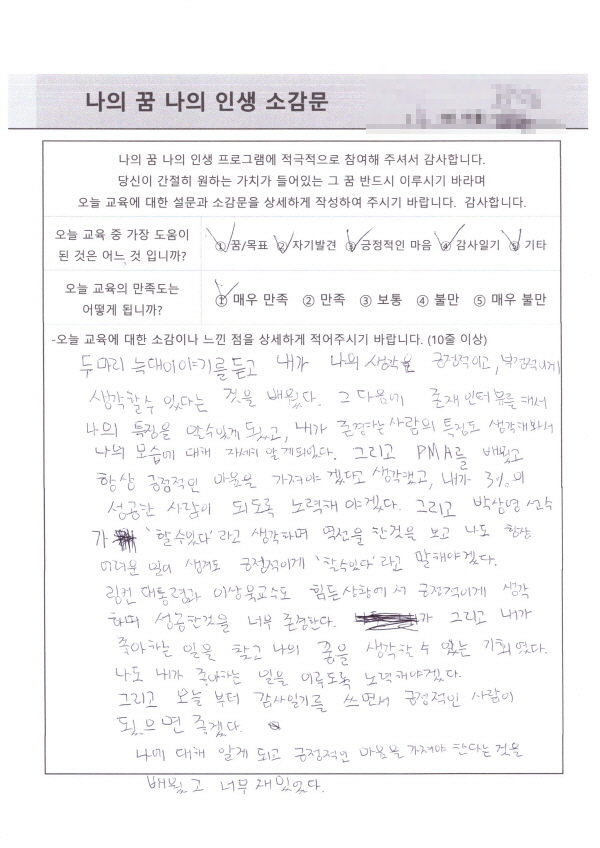 나의 꿈 나의 인생 소감문
나의 꿈 나의 인생 프로그램에 적극적으로 참여해 주셔서 감사합니다.
당신이 간절히 원하는 가치가 들어있는 그 꿈 반드시 이루시기 바라며
오늘 교육에 대한 설문과 소감문을 상세하게 작성하여 주시기 바랍니다. 감사합니다.
오늘 교육 중 가장 도움이 된 것은 어느 것 입니까? ① 꿈/목표 ② 자기발견 ③ 긍정적인 마음 ④ 감사일기 ⑤ 기타
오늘 교육의 만족도는 어떻게 됩니까? ① 매우 만족 ② 만족 ③ 보통 ④ 불만 ⑤ 매우 불만
-오늘 교육에 대한 소감이나 느낀 점을 상세하게 적어주시기 바랍니다. (10줄 이상)
두마리 늑대이야기를 듣고 내가 나의 생각을 긍정적이고, 부정적이게
생각할수 있다는 것을 배웠다. 그 다음에 존재인터뷰를 해서
나의 특징을 알수있게 되었고, 내가 존경하는 사람의 특징도 생각해봐서
나의 모습에 대해 자세히 알게되었다. 그리고 PMA를 배웠고
항상 긍정적인 마음을 가져야 겠다고 생각했고, 내가 3%의
성공한 사람이 되도록 노력해 야겠다. 그리고 박상영 선수
가 '할수있다' 라고 생각하며 역전을 한것을 보고 나도 항상
어려운 일이 생겨도 긍정적이게 '할수있다' 라고 말해야겠다.
링컨 대통령과 이상묵교수도 힘든상황에서 긍정적이게 생각
하며 성공한것을 너무 존경한다. 그리고 내가
좋아하는 일을 찾고 나의 꿈을 생각할 수 있는 기회였다.
나도 내가 좋아하는 일을 이루도록 노력해야겠다.
그리고 오늘 부터 감사일기를 쓰면서 긍정적인 사람이
되었으면 좋겠다.
나에 대해 알게 되고 긍정적인 마음을 가져야 한다는 것을
배웠고 너무 재밌었다.